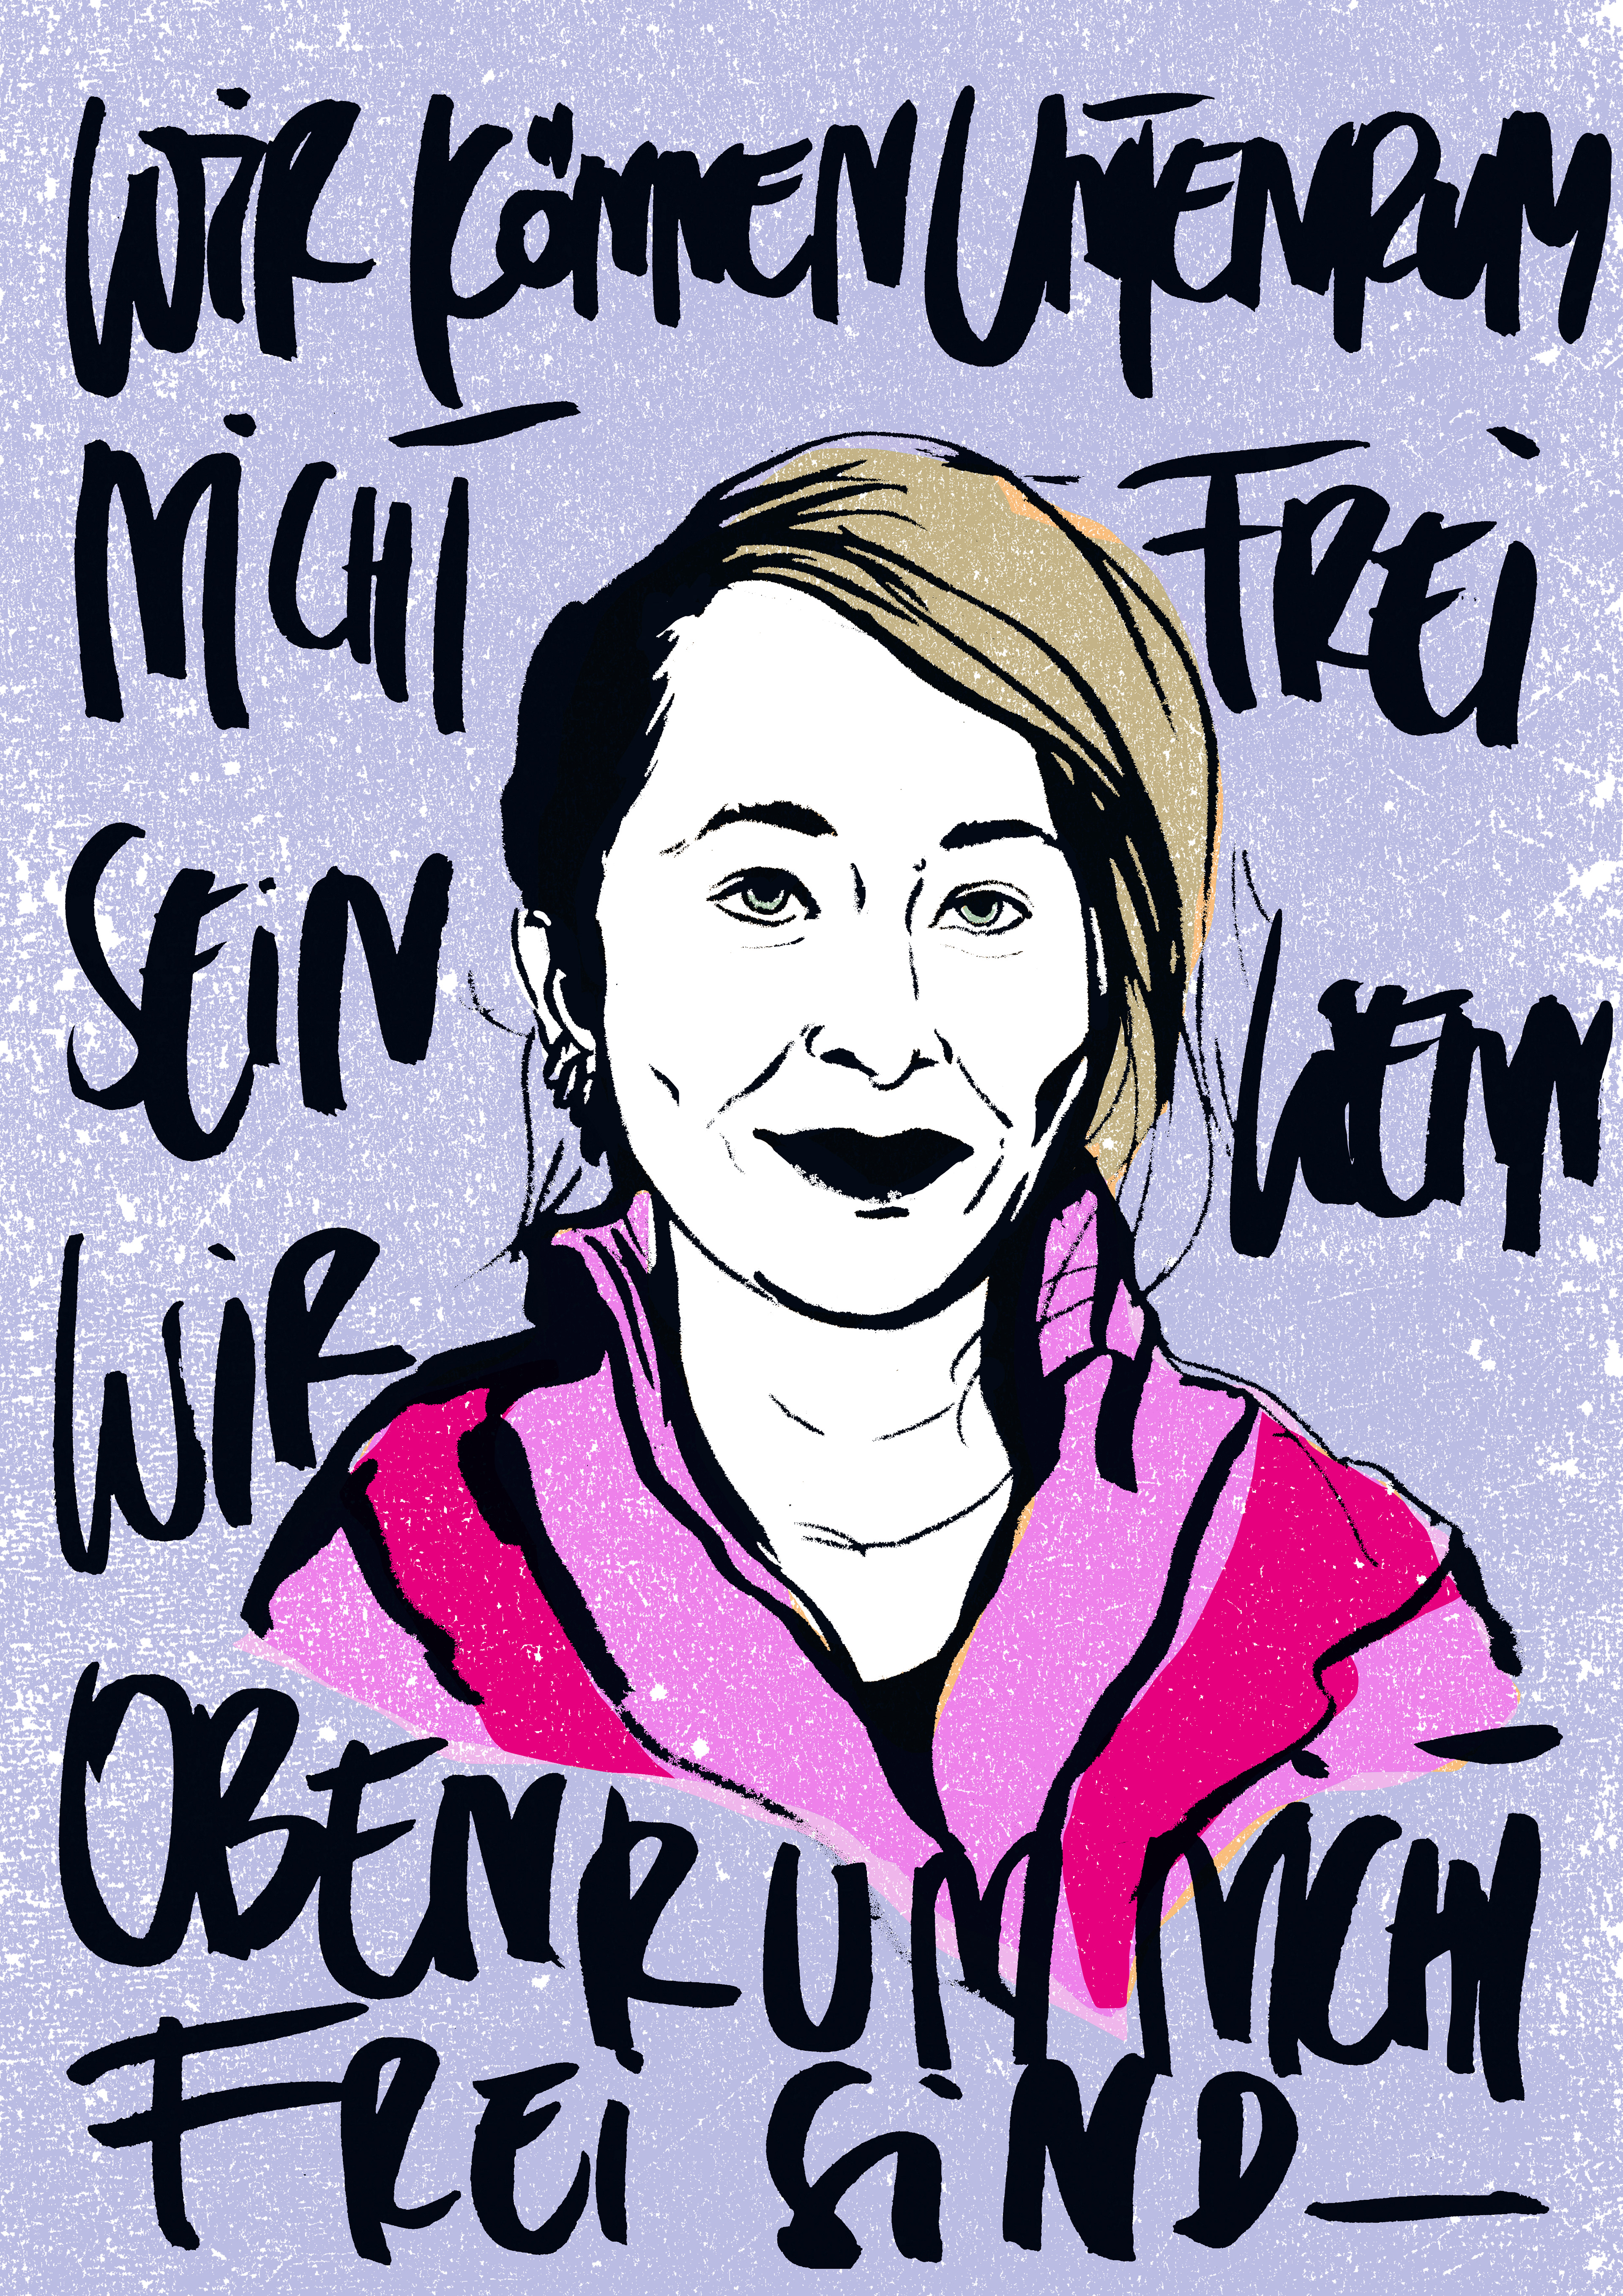 WiR KÖNNEN UNTENRUM
NiCHT FREi
SEiN WENN
WiR
OBENRUM NiCHT
FREi SiND_